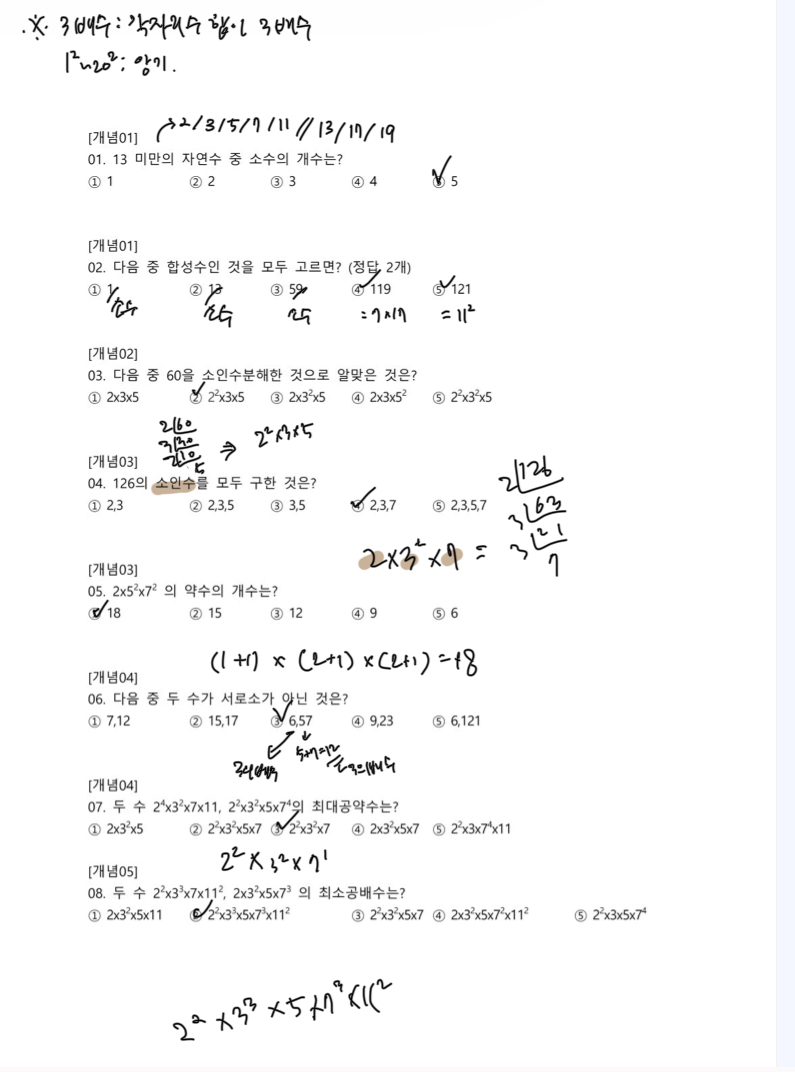 ※ 3배수 : 각자리수 합이 3배수
1²~20² : 암기.
[개념01] →2/3/5/7/11//13/17/19
01. 13 미만의 자연수 중 소수의 개수는?
① 1 ② 2 ③ 3 ④ 4 ⑤ 5
[개념01]
02. 다음 중 합성수인 것을 모두 고르면? (정답 2개)
① 1 ② 13 ③ 59 ④ 119 ⑤ 121
소수 소수 =7×17 =11²
[개념02]
03. 다음 중 60을 소인수분해한 것으로 알맞은 것은?
① 2x3x5 ② 2²x3x5 ③ 2x3²x5 ④ 2x3x5² ⑤ 2²x3²x5
2 60
3 30 ⇒ 2²×3×5
2 10
5
[개념03]
04. 126의 소인수를 모두 구한 것은?
① 2,3 ② 2,3,5 ③ 3,5 ④ 2,3,7 ⑤ 2,3,5,7
2 126
3 63
2×3²×7 = 3 21
7
[개념03]
05. 2x5²x7² 의 약수의 개수는?
① 18 ② 15 ③ 12 ④ 9 ⑤ 6
(1+1) × (2+1) × (2+1) = 18
[개념04]
06. 다음 중 두 수가 서로소가 아닌 것은?
① 7,12 ② 15,17 ③ 6,57 ④ 9,23 ⑤ 6,121
3의배수 5+7=12
3의배수
[개념04]
07. 두 수 2⁴x3²x7x11, 2²x3²x5x7⁴의 최대공약수는?
① 2x3²x5 ② 2²x3²x5x7 ③ 2²x3²x7 ④ 2x3²x5x7 ⑤ 2²x3x7⁴x11
2² × 3² × 7¹
[개념05]
08. 두 수 2²x3³x7x11², 2x3²x5x7³ 의 최소공배수는?
① 2x3²x5x11 ② 2²x3³x5x7³x11² ③ 2²x3²x5x7 ④ 2x3²x5x7²x11² ⑤ 2²x3x5x7⁴
2² × 3³ × 5 × 7³ × 11²